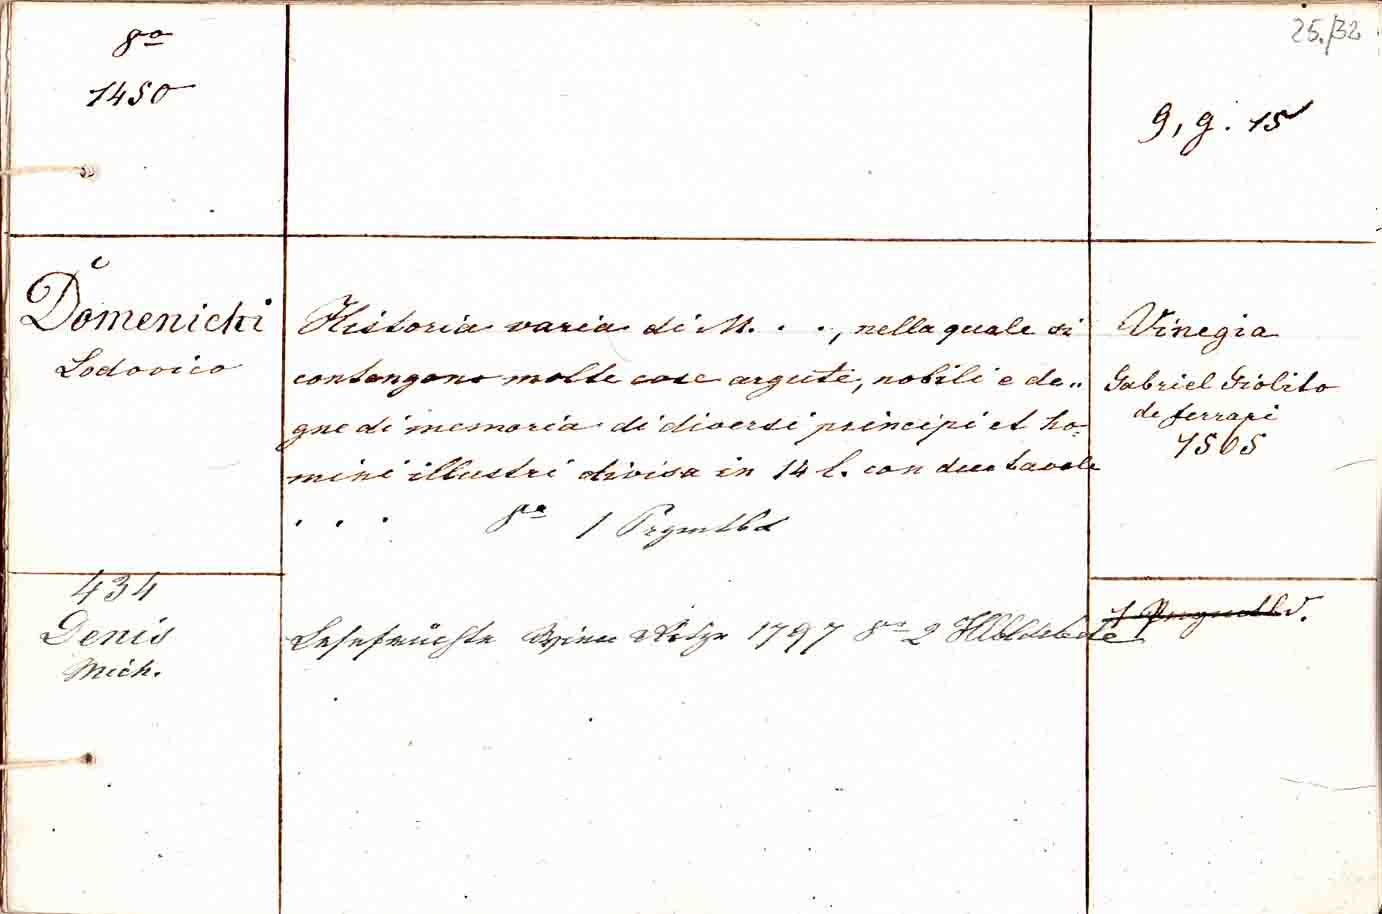 8º
1450
25./32
9, g. 15
Domenichi
Lodovico
Historia varia di M. . . ., nella quale si
contengono molte cose argute, nobili e de„
gne di memoria di diversi principi et ho„
mini illustri divisa in 14 l. con due tavole
. . . 8º 1 Prgmtbd
Vinegia
Gabriel Giolito
de ferrari
1565
434
Denis
Mich.
Lesefrüchte Wien 1797 8º 2 Hlbldrbde
1 Prgmtbd.